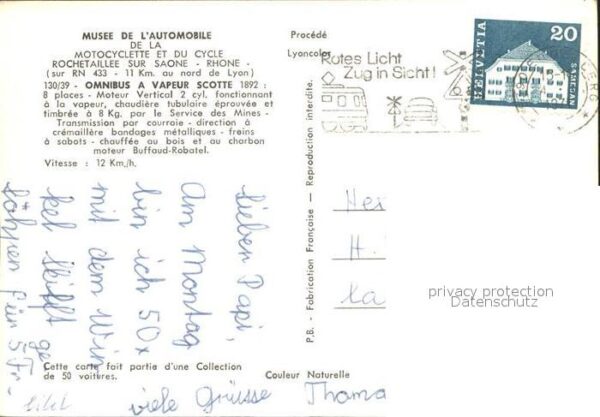 MUSEE DE L'AUTOMOBILE
DE LA
MOTOCYCLETTE ET DU CYCLE
ROCHETAILLEE SUR SAONE - RHONE -
(sur RN 433 - 11 Km. au nord de Lyon)
130/39 - OMNIBUS A VAPEUR SCOTTE 1892 :
8 places - Moteur Vertical 2 cyl. fonctionnant
à la vapeur, chaudière tubulaire éprouvée et
timbrée à 8 Kg. par le Service des Mines -
Transmission par courroie - direction à
crémaillère bandages métalliques - freins
à sabots - chauffée au bois et au charbon
moteur Buffaud-Robatel.
Vitesse : 12 Km./h.
Procédé
Lyoncolor
P.B. - Fabrication Française - Reproduction interdite.
Rotes Licht
Zug in Sicht!
20
HELVETIA
lieben Papi,
Am Montag
bin ich 50x
mit dem
für 5 Fr.
viele Grüsse Thoma
H.
privacy protection
Datenschutz
Cette carte fait partie d'une Collection
de 50 voitures.
Couleur Naturelle